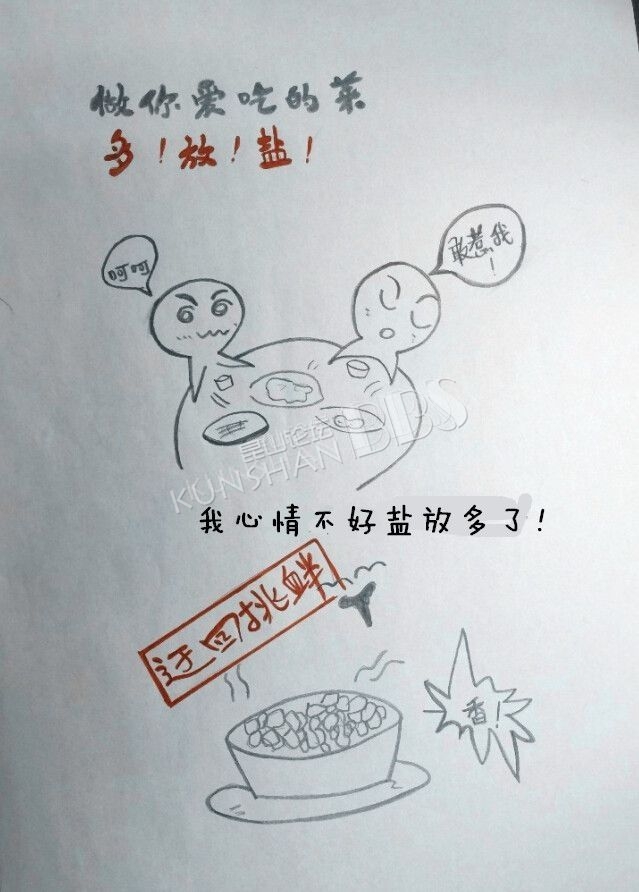 做你爱吃的菜
多！放！盐！
呵呵
敢惹我！
昆山论坛
KUNSHAN BBS
我心情不好盐放多了!
迂回挑鲜
香！